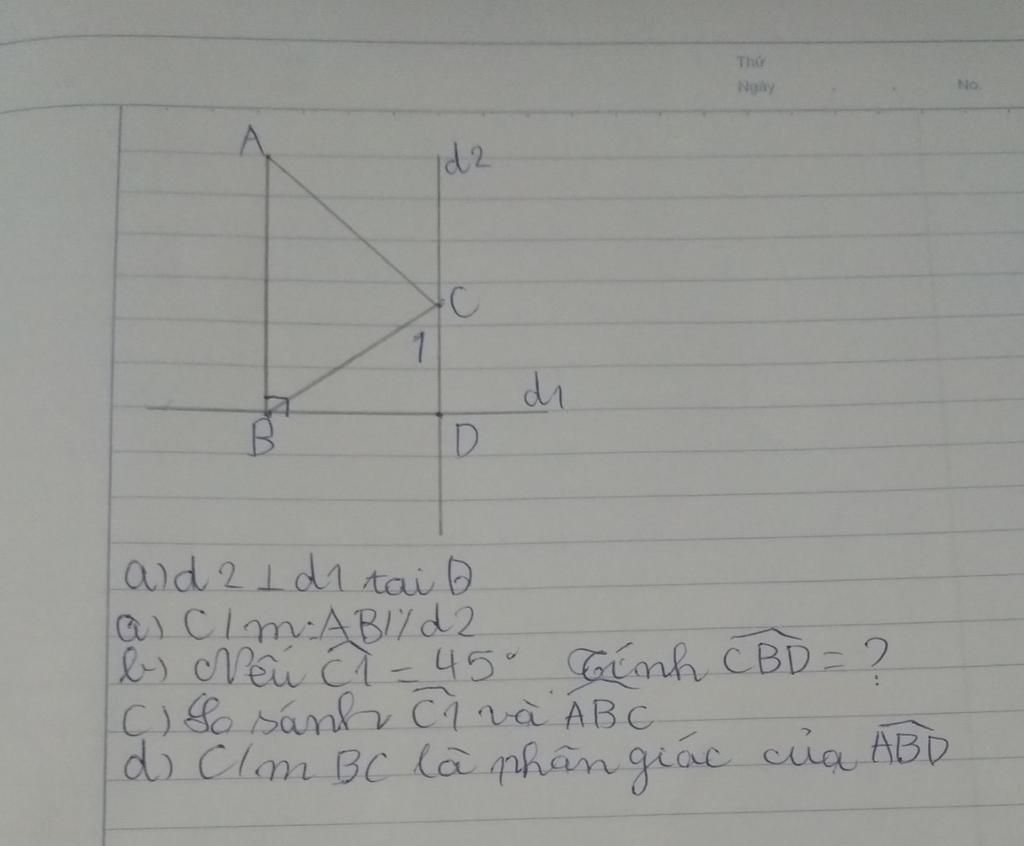 Thứ
Ngày . . No.
A
d2
C
1
d1
B
D
a) d2 ⊥ d1 tai D
a) C/m: AB // d2
b) Nếu Ĉ1 = 45° Tính CBD̂ = ?
c) So sánh Ĉ1 và ABĈ
d) C/m BC là phân giác của ABD̂